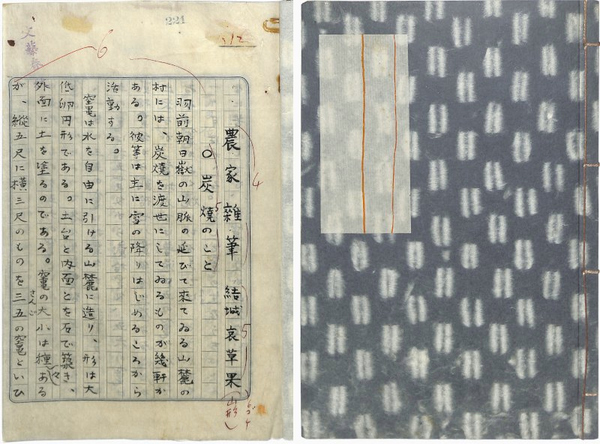 農家雑筆 結城哀草果
(山形)
○炭焼のこと
羽前朝日嶽の山脈の延びて来てゐる山麓の
村には、炭焼を渡世にしてゐるものが幾軒か
ある。彼等は主に雪の降りはじめるころから
活動する。
窯は水を自由に引ける山麓に造り、形は大
低卵円形である。土台と内面とを石で築き、
外面に土を塗るのである。窯の大小は種々ある
が、縦五尺に横三尺のものを三五の窯といひ
さんご
6
4
5
5